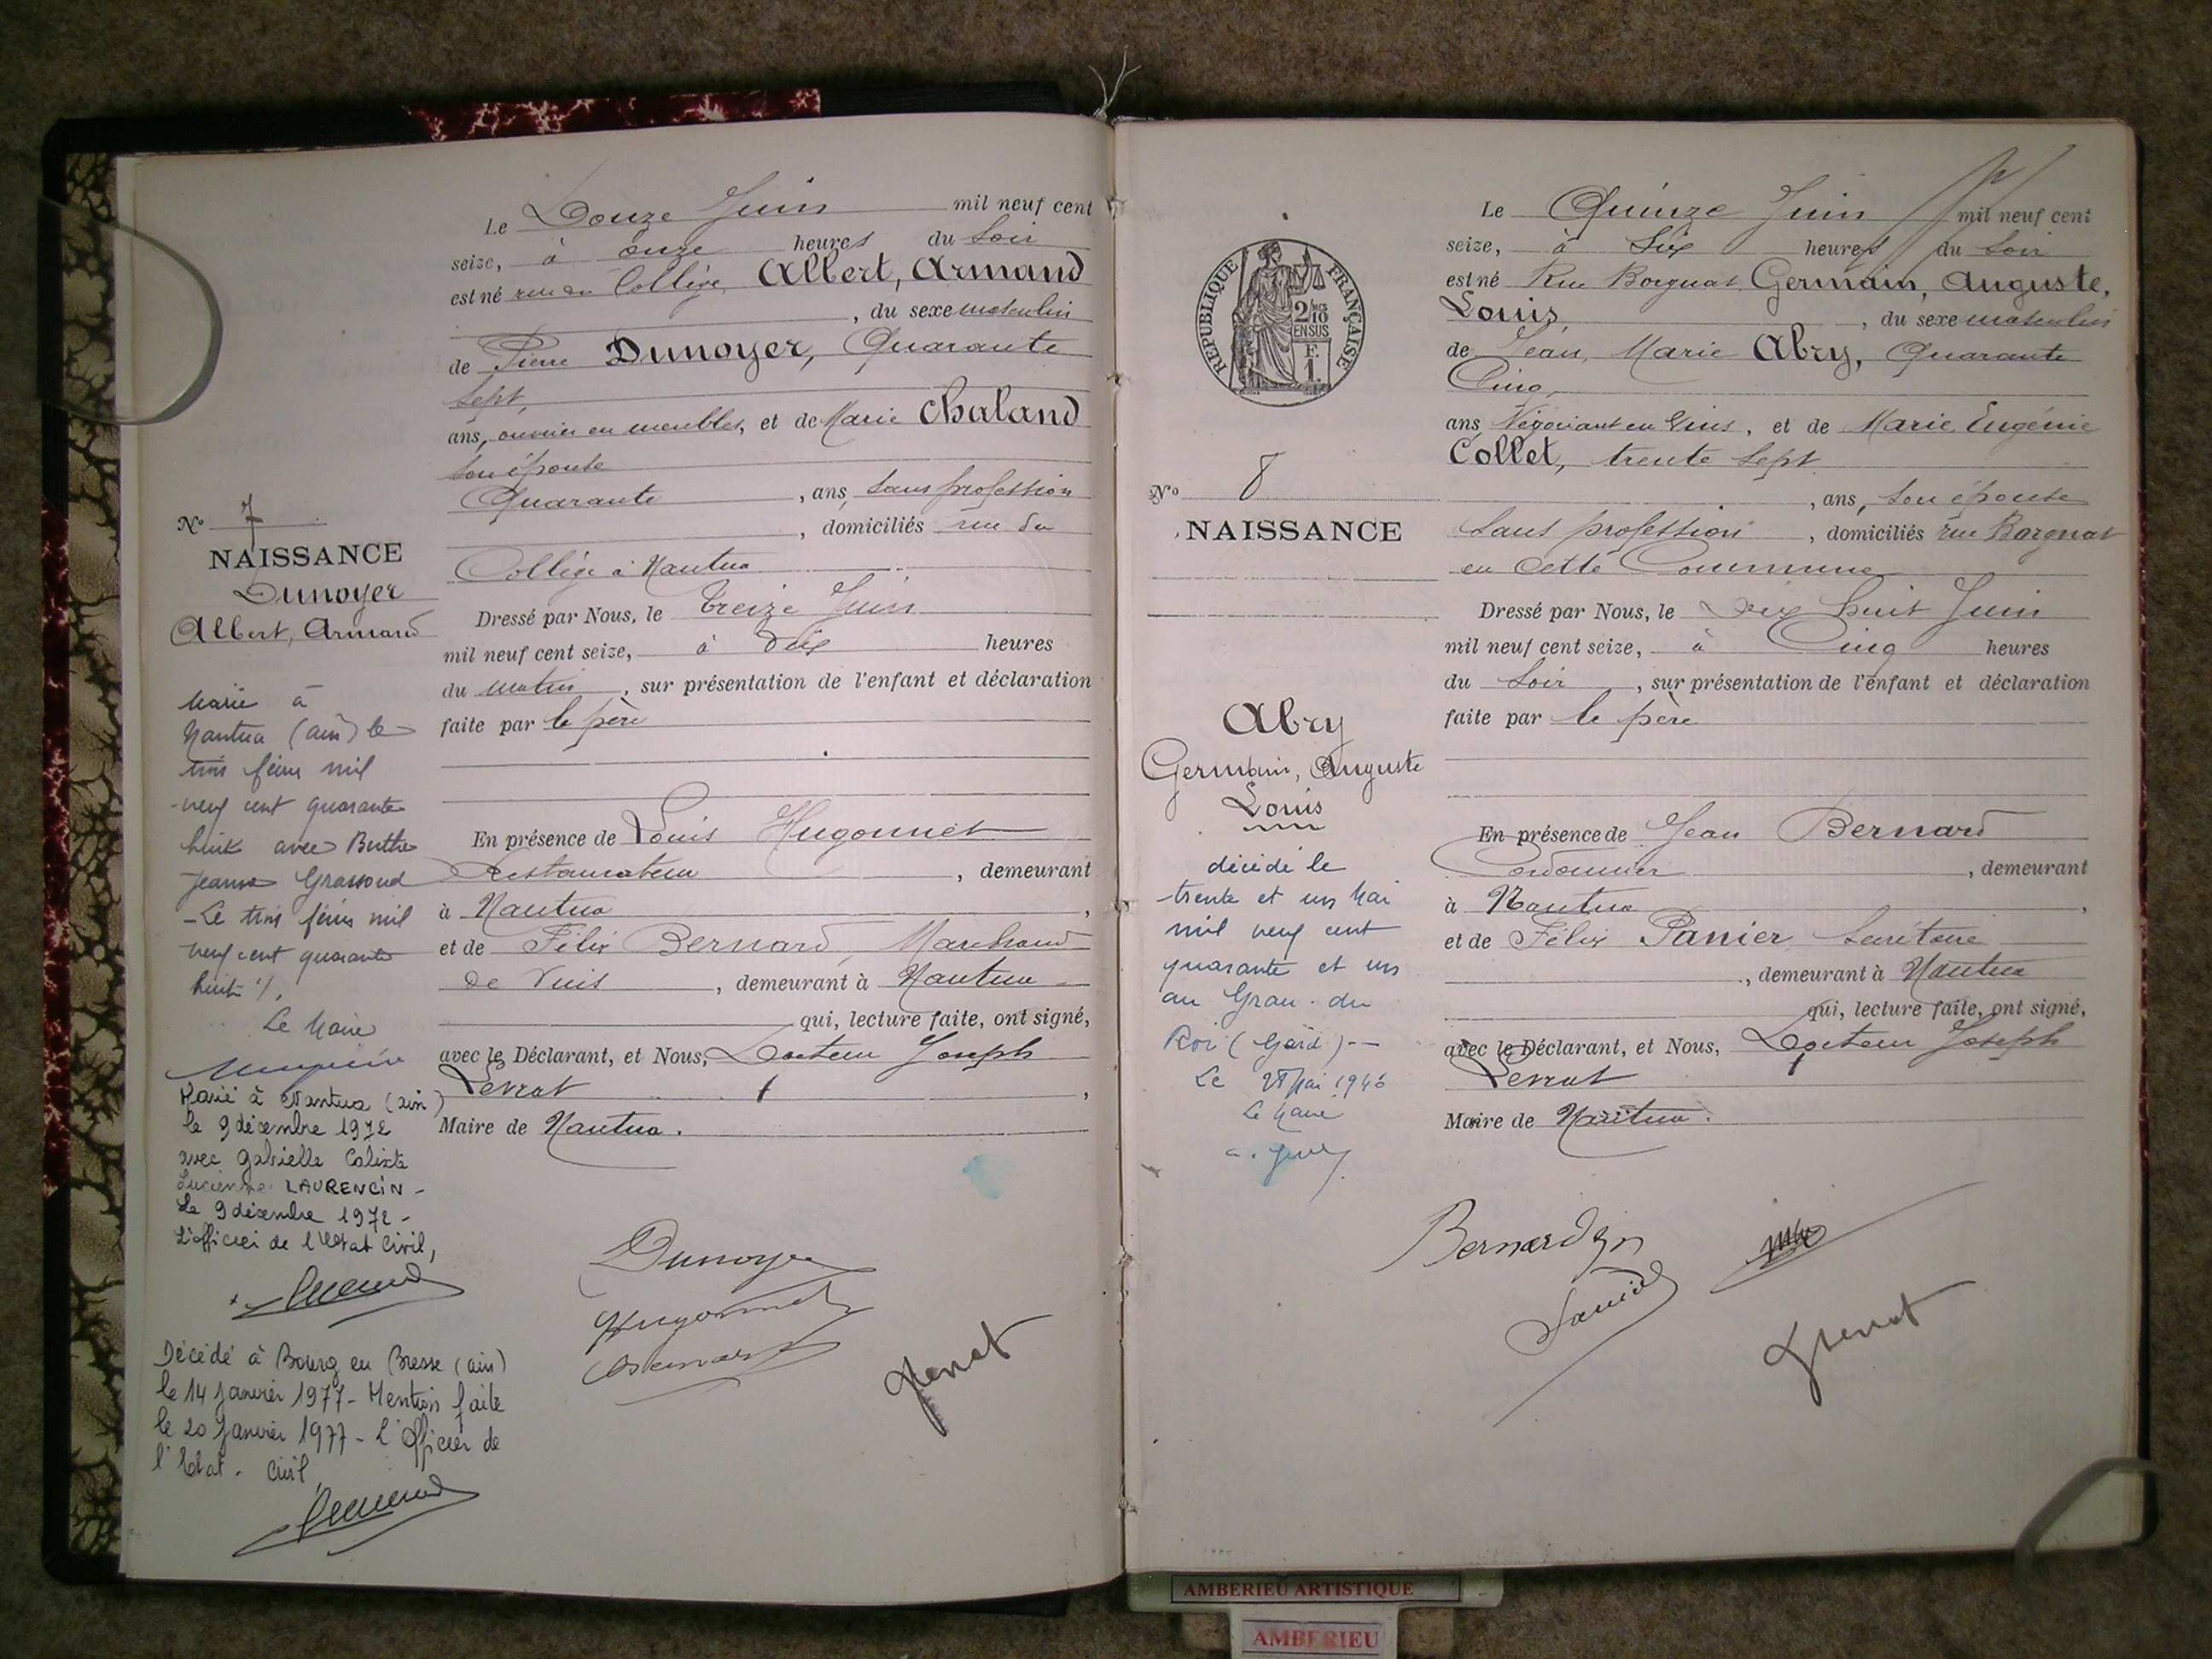 Le Douze Juin mil neuf cent
seize, à onze heures du soir
est né rue du Collège, Albert, Armand
, du sexe masculin
de Pierre Dunoyer, Quarante
sept,
ans, ouvrier en meubles, et de Marie Chaland
son épouse
Quarante , ans, sans profession
, domiciliés rue du
Collège à Nantua
Dressé par Nous, le treize Juin
mil neuf cent seize, à dix heures
du matin , sur présentation de l'enfant et déclaration
faite par le père
En présence de Louis Hugonnet
Restaurateur , demeurant
à Nantua ,
et de Félix Bernard, Marchand
de Vins , demeurant à Nantua
qui, lecture faite, ont signé,
avec le Déclarant, et Nous, Docteur Joseph
Levrat ,
Maire de Nantua.
Dunoyer
Hugonnet
Bernard
No 7
NAISSANCE
Dunoyer
Albert, Armand
Marié à
Nantua (ain) le
trois février mil
neuf cent quarante
huit avec Berthe
Jeanne
- Le trois février mil
neuf cent quarante
huit ./.
Le Maire
Marié à Nantua (ain)
le 9 décembre 1972
avec Gabrielle Calixte
Lucienne LAURENCIN -
Le 9 décembre 1972 -
L'officier de l'Etat Civil,
Décédé à Bourg en Bresse (ain)
le 14 Janvier 1977 - Mention faite
le 20 Janvier 1977 - l'Officier de
l'Etat. Civil
REPUBLIQUE FRANÇAISE
2/10
EN SUS
F.
1.
No 8
NAISSANCE
Abry
Germain, Auguste
Louis
décédé le
trente et un Mai
mil neuf cent
quarante et un
au Grau. du
Roi (Gard) -
Le 28 Mai 1946
Le Maire
Le Quinze Juin mil neuf cent
seize, à Six heures du soir
est né Rue Borgnat Germain, Auguste,
Louis, , du sexe masculin
de Jean, Marie Abry, Quarante
Cinq,
ans, Négociant en Vins, et de Marie Eugénie
Collet, trente sept
, ans, son épouse
sans profession , domiciliés rue Borgnat
en cette Commune
Dressé par Nous, le Dix huit Juin
mil neuf cent seize, à Cinq heures
du soir , sur présentation de l'enfant et déclaration
faite par le père
En présence de Jean Bernard
Cordonnier , demeurant
à Nantua ,
et de Félix Panier Secrétaire
, demeurant à Nantua
qui, lecture faite, ont signé,
avec le Déclarant, et Nous, Docteur Joseph
Levrat
Maire de Nantua.
AMBERIEU ARTISTIQUE
AMBERIEU